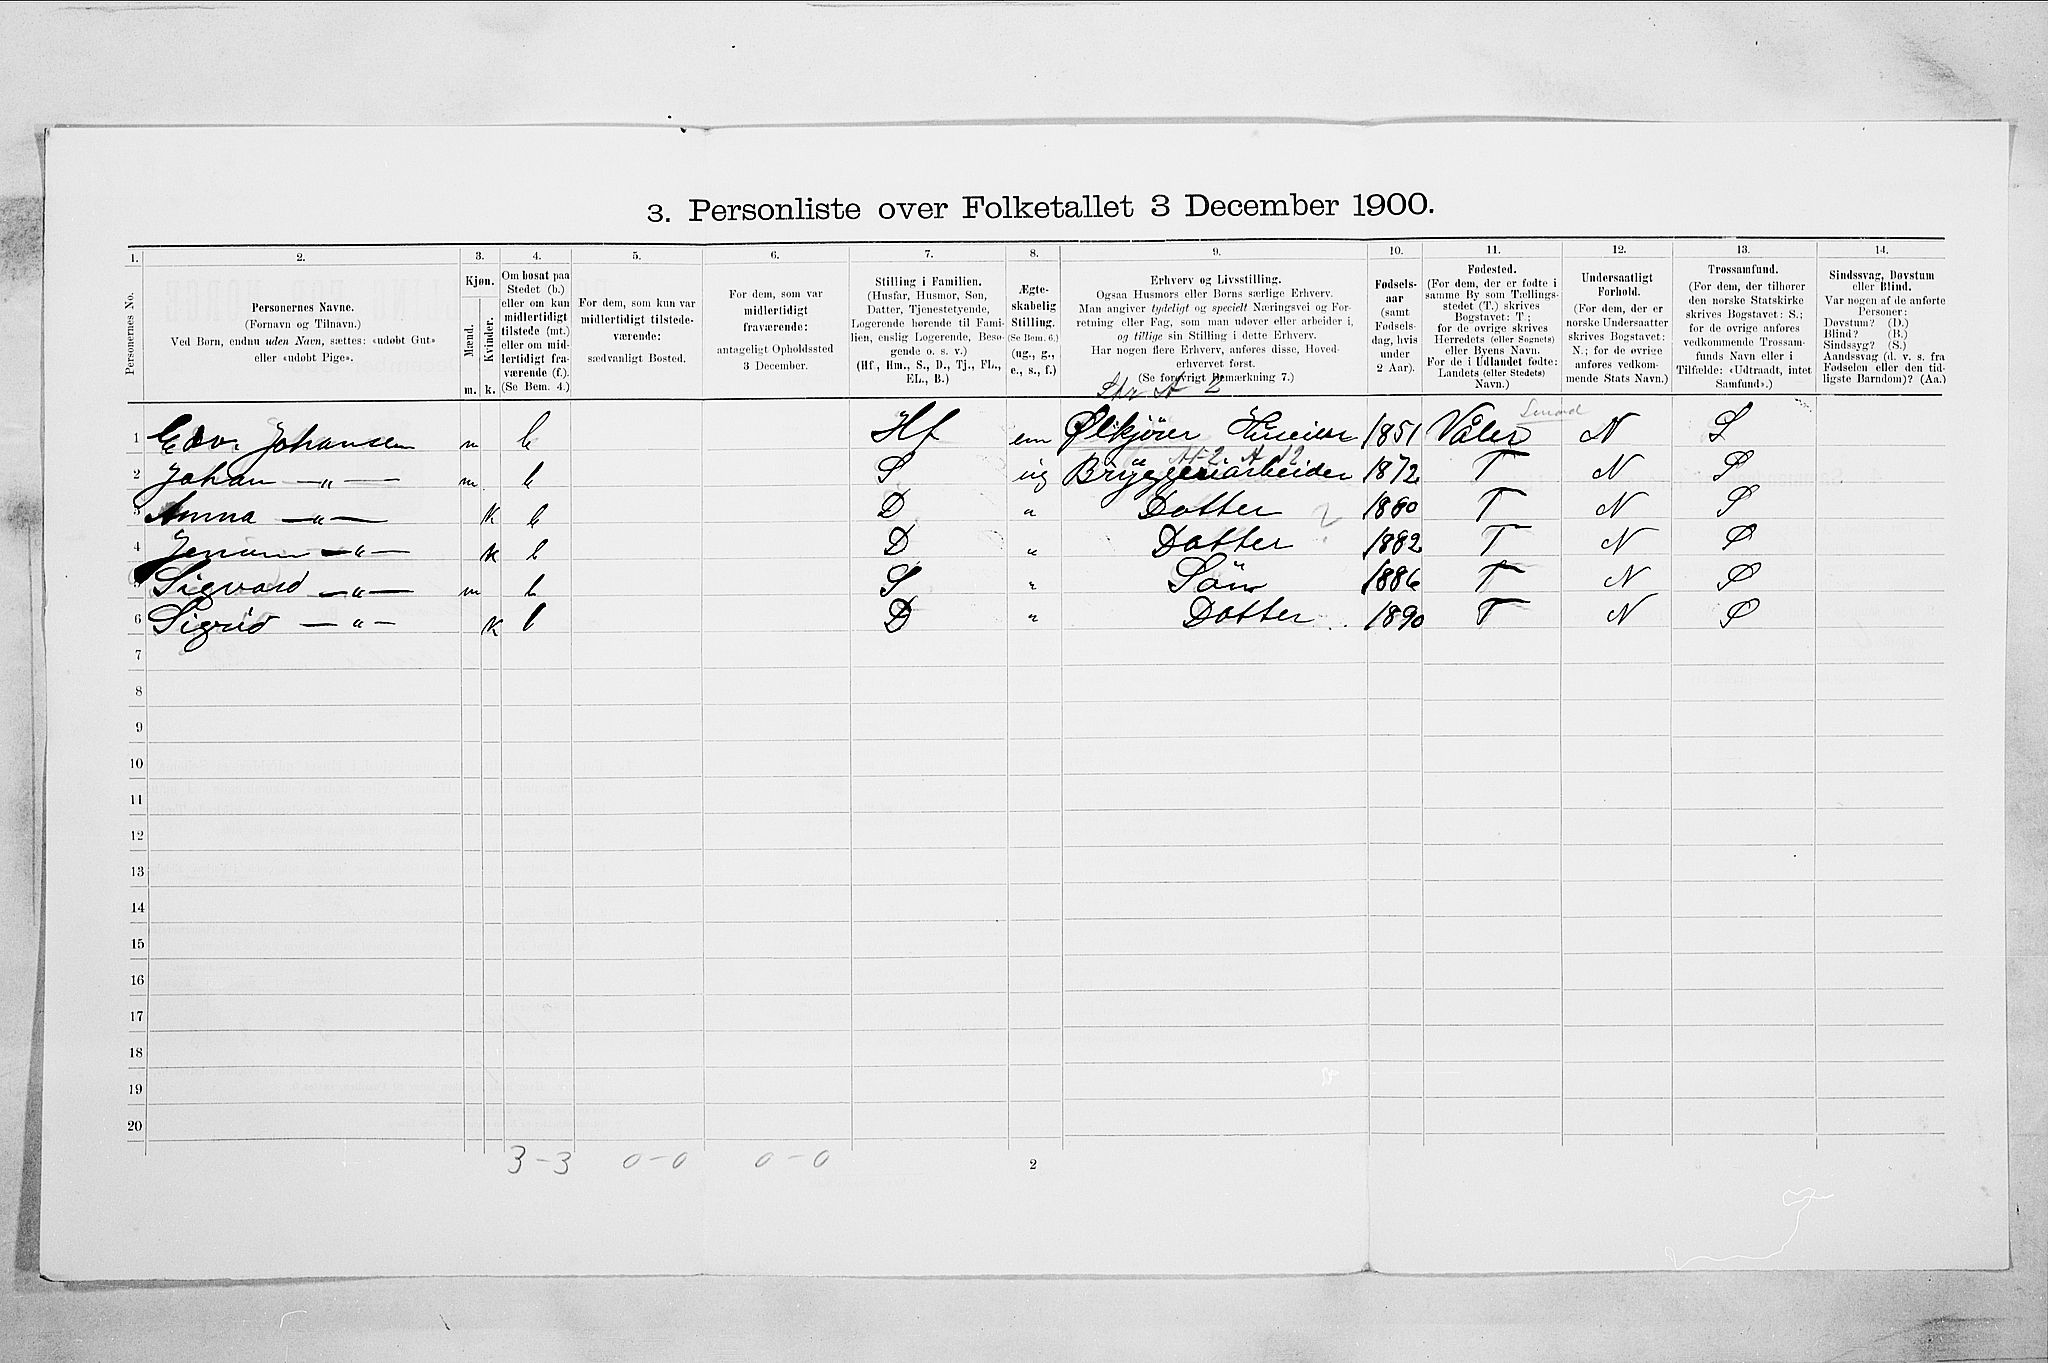 3. Personliste over Folketallet 3 December 1900.
1. 2. 3. 4. 5. 6. 7. 8. 9. 10. 11. 12. 13. 14.
Personernes No.
Personernes Navne.
(Fornavn og Tilnavn.)
Ved Børn, endnu uden Navn, sættes: «udøbt Gut»
eller «udøbt Pige».
Kjøn.
Mænd.
Kvinder.
m. k.
Om bosat paa
Stedet (b.)
eller om kun
midlertidigt
tilstede (mt.)
eller om mid-
lertidigt fra-
værende (f.).
(Se Bem. 4.)
For dem, som kun var
midlertidigt tilstede-
værende:
sædvanligt Bosted.
For dem, som var
midlertidigt
fraværende:
antageligt Opholdssted
3 December.
Stilling i Familien.
(Husfar, Husmor, Søn,
Datter, Tjenestetyende,
Logerende hørende til Fami-
lien, enslig Logerende, Besø-
gende o. s. v.)
(Hf., Hm., S., D., Tj., FL.,
EL., B.)
Ægte-
skabelig
Stilling.
(Se Bem. 6.)
(ug., g.,
e., s., f.)
Erhverv og Livsstilling.
Ogsaa Husmors eller Børns særlige Erhverv.
Man angiver tydeligt og specielt Næringsvei og For-
retning eller Fag, som man udøver eller arbeider i,
og tillige sin Stilling i dette Erhverv.
Har nogen flere Erhverv, anføres disse, Hoved-
erhvervet først.
(Se forøvrigt Bemærkning 7.)
Fødsels-
aar
(samt
Fødsels-
dag, hvis
under
2 Aar).
Fødested.
(For dem, der er fødte i
samme By som Tællings-
stedet (T.) skrives
Bogstavet: T.;
for de øvrige skrives
Herredets (eller Sognets)
eller Byens Navn.
For de i Udlandet fødte:
Landets (eller Stedets)
Navn.)
Undersaatligt
Forhold.
(For dem, der er
norske Undersaatter
skrives Bogstavet:
N.; for de øvrige
anføres vedkom-
mende Stats Navn.)
Trossamfund.
(For dem, der tilhører
den norske Statskirke
skrives Bogstavet: S.;
for de øvrige anføres
vedkommende Trossam-
funds Navn eller i
Tilfælde: «Udtraadt, intet
Samfund».)
Sindssvag, Døvstum
eller Blind.
Var nogen af de anførte
Personer:
Døvstum? (D.)
Blind? (B.)
Sindssyg? (S.)
Aandssvag (d. v. s. fra
Fødselen eller den tid-
ligste Barndom)? (Aa.)
A 2
1 Edv. Johansen m b Hf em Ølkjører 1851 Våler N S
2 Johan -„- m b S ug Bryggeriarbeider 1872 T N S
3 Anna -„- k b D „ Datter 1880 T N S
4 -„- k b D „ Datter 1882 T N S
5 Sigvard -„- m b S „ Sön 1886 T N S
6 Sigrid -„- k b D „ Datter 1890 T N S
7
8
9
10
11
12
13
14
15
16
17
18
19
20
3-3 0-0 0-0
2